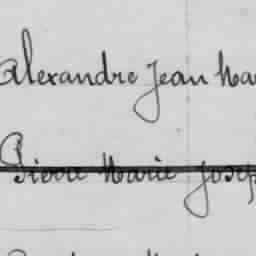 Alexandre Jean Ma
Pierre Marie Josep